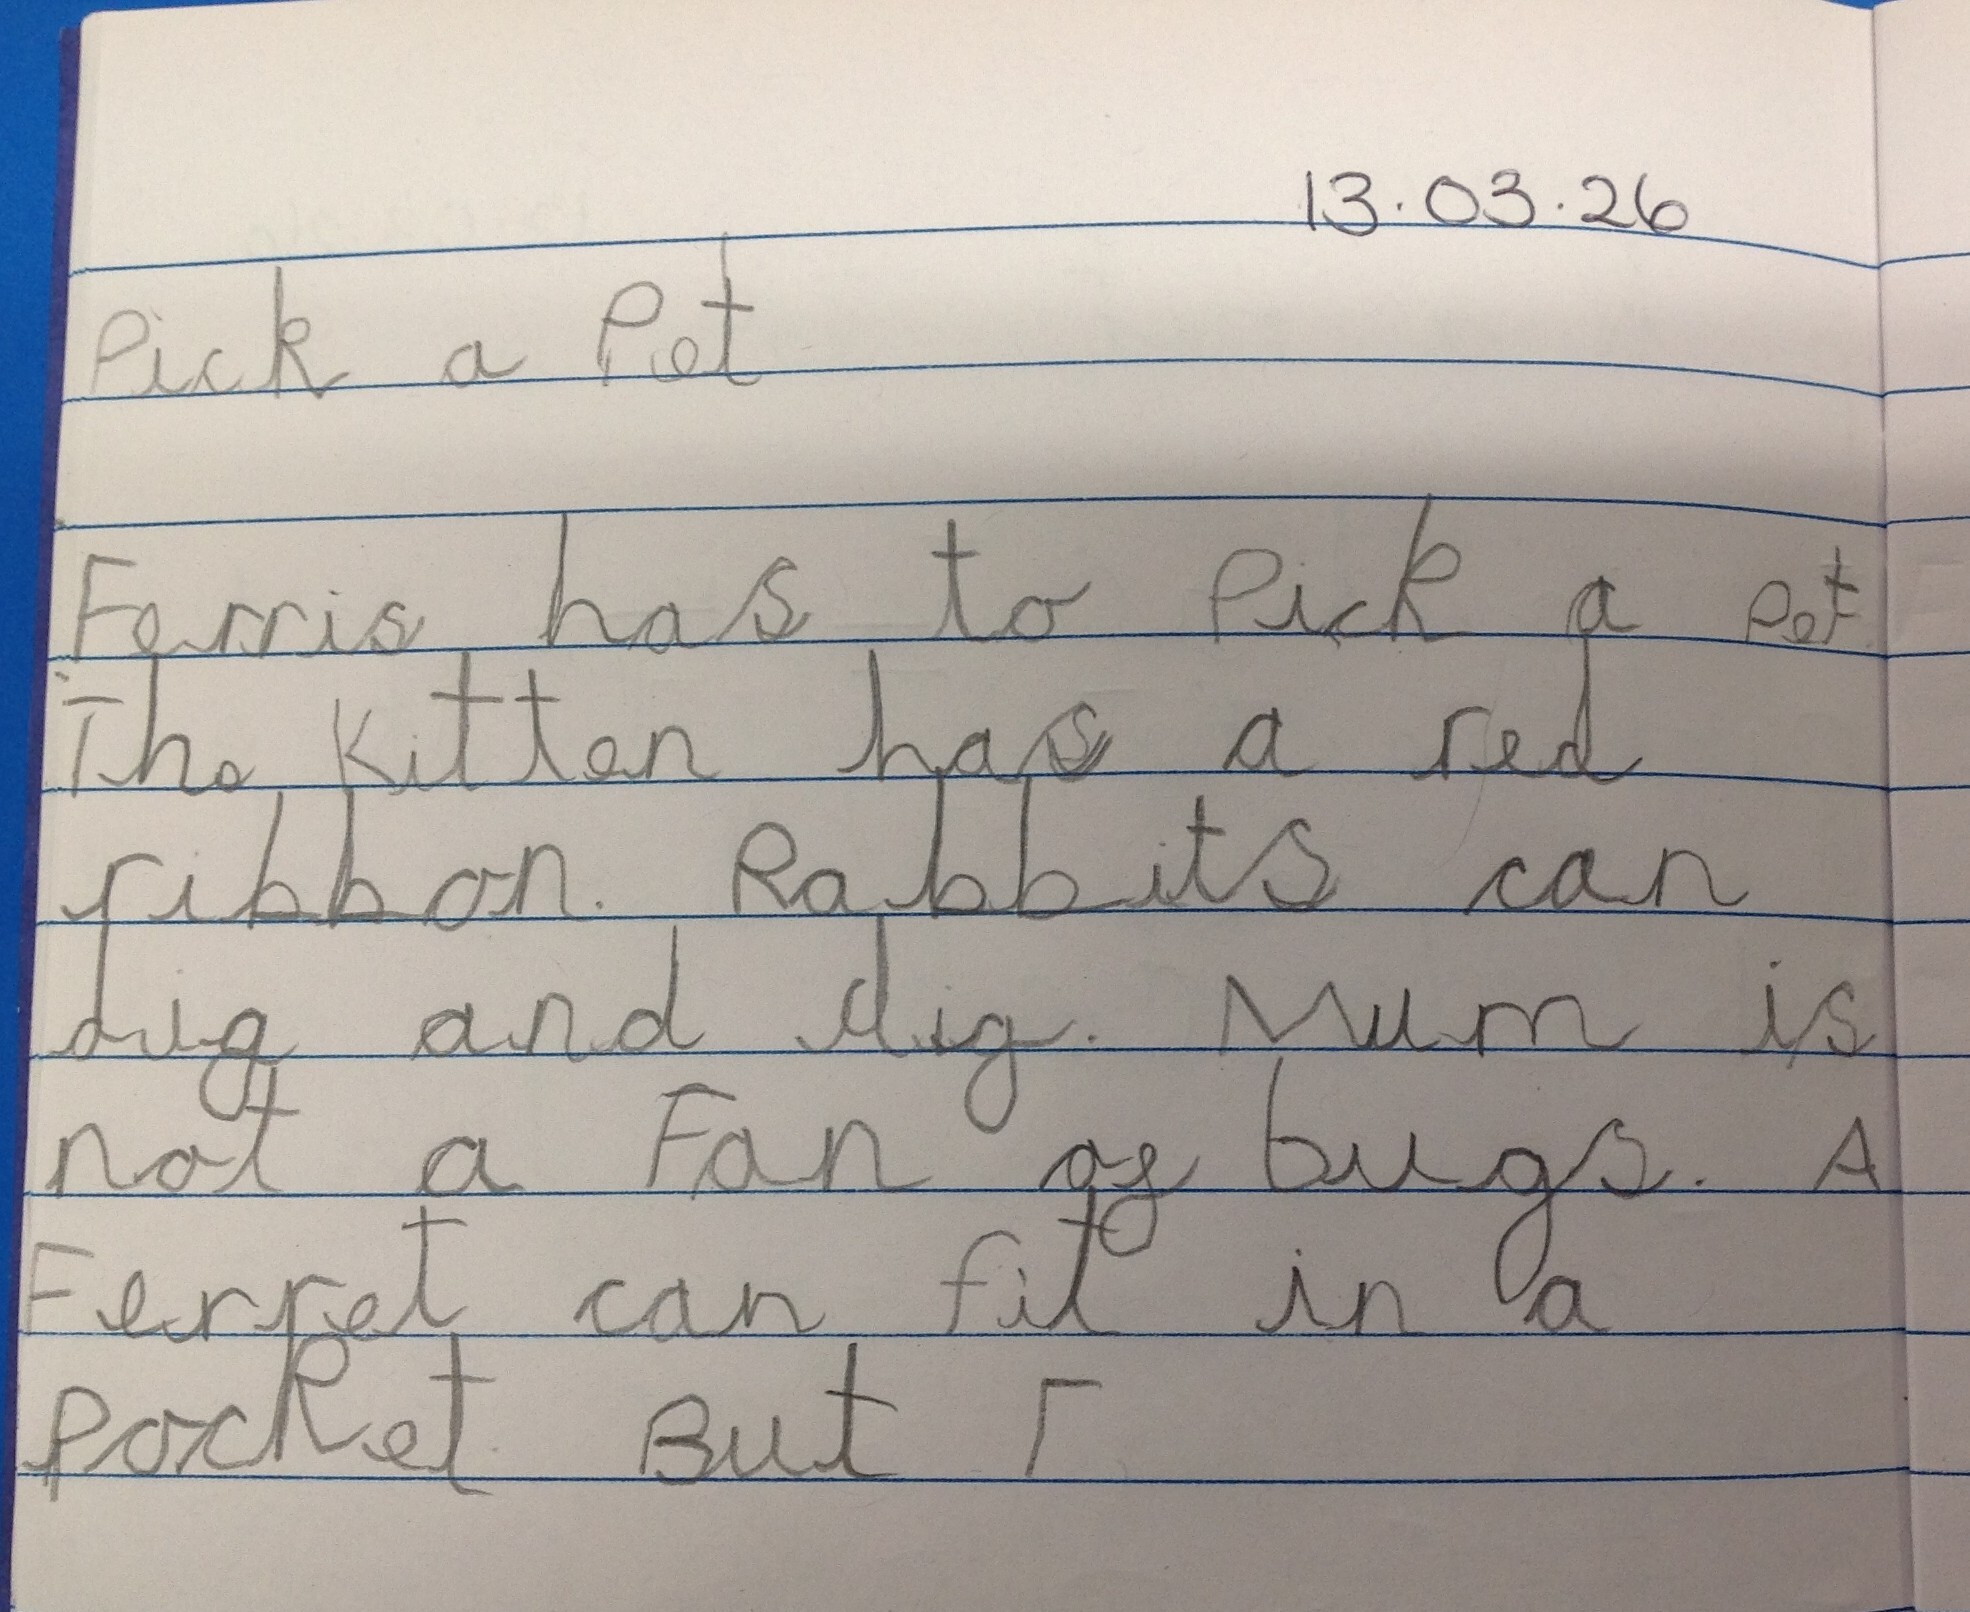 13.03.26
Pick a Pet
Ferris has to Pick a Pet.
The Kitten has a red
ribbon. Rabbits can
dig and dig. Mum is
not a Fan of bugs. A
Ferret can fit in a
Pocket. But